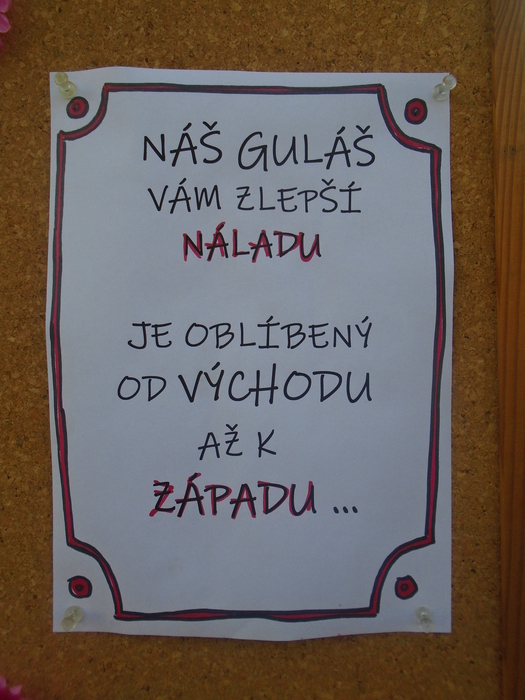 NÁŠ GULÁŠ
VÁM ZLEPŠÍ
NÁLADU
JE OBLÍBENÝ
OD VÝCHODU
AŽ K
ZÁPADU ...